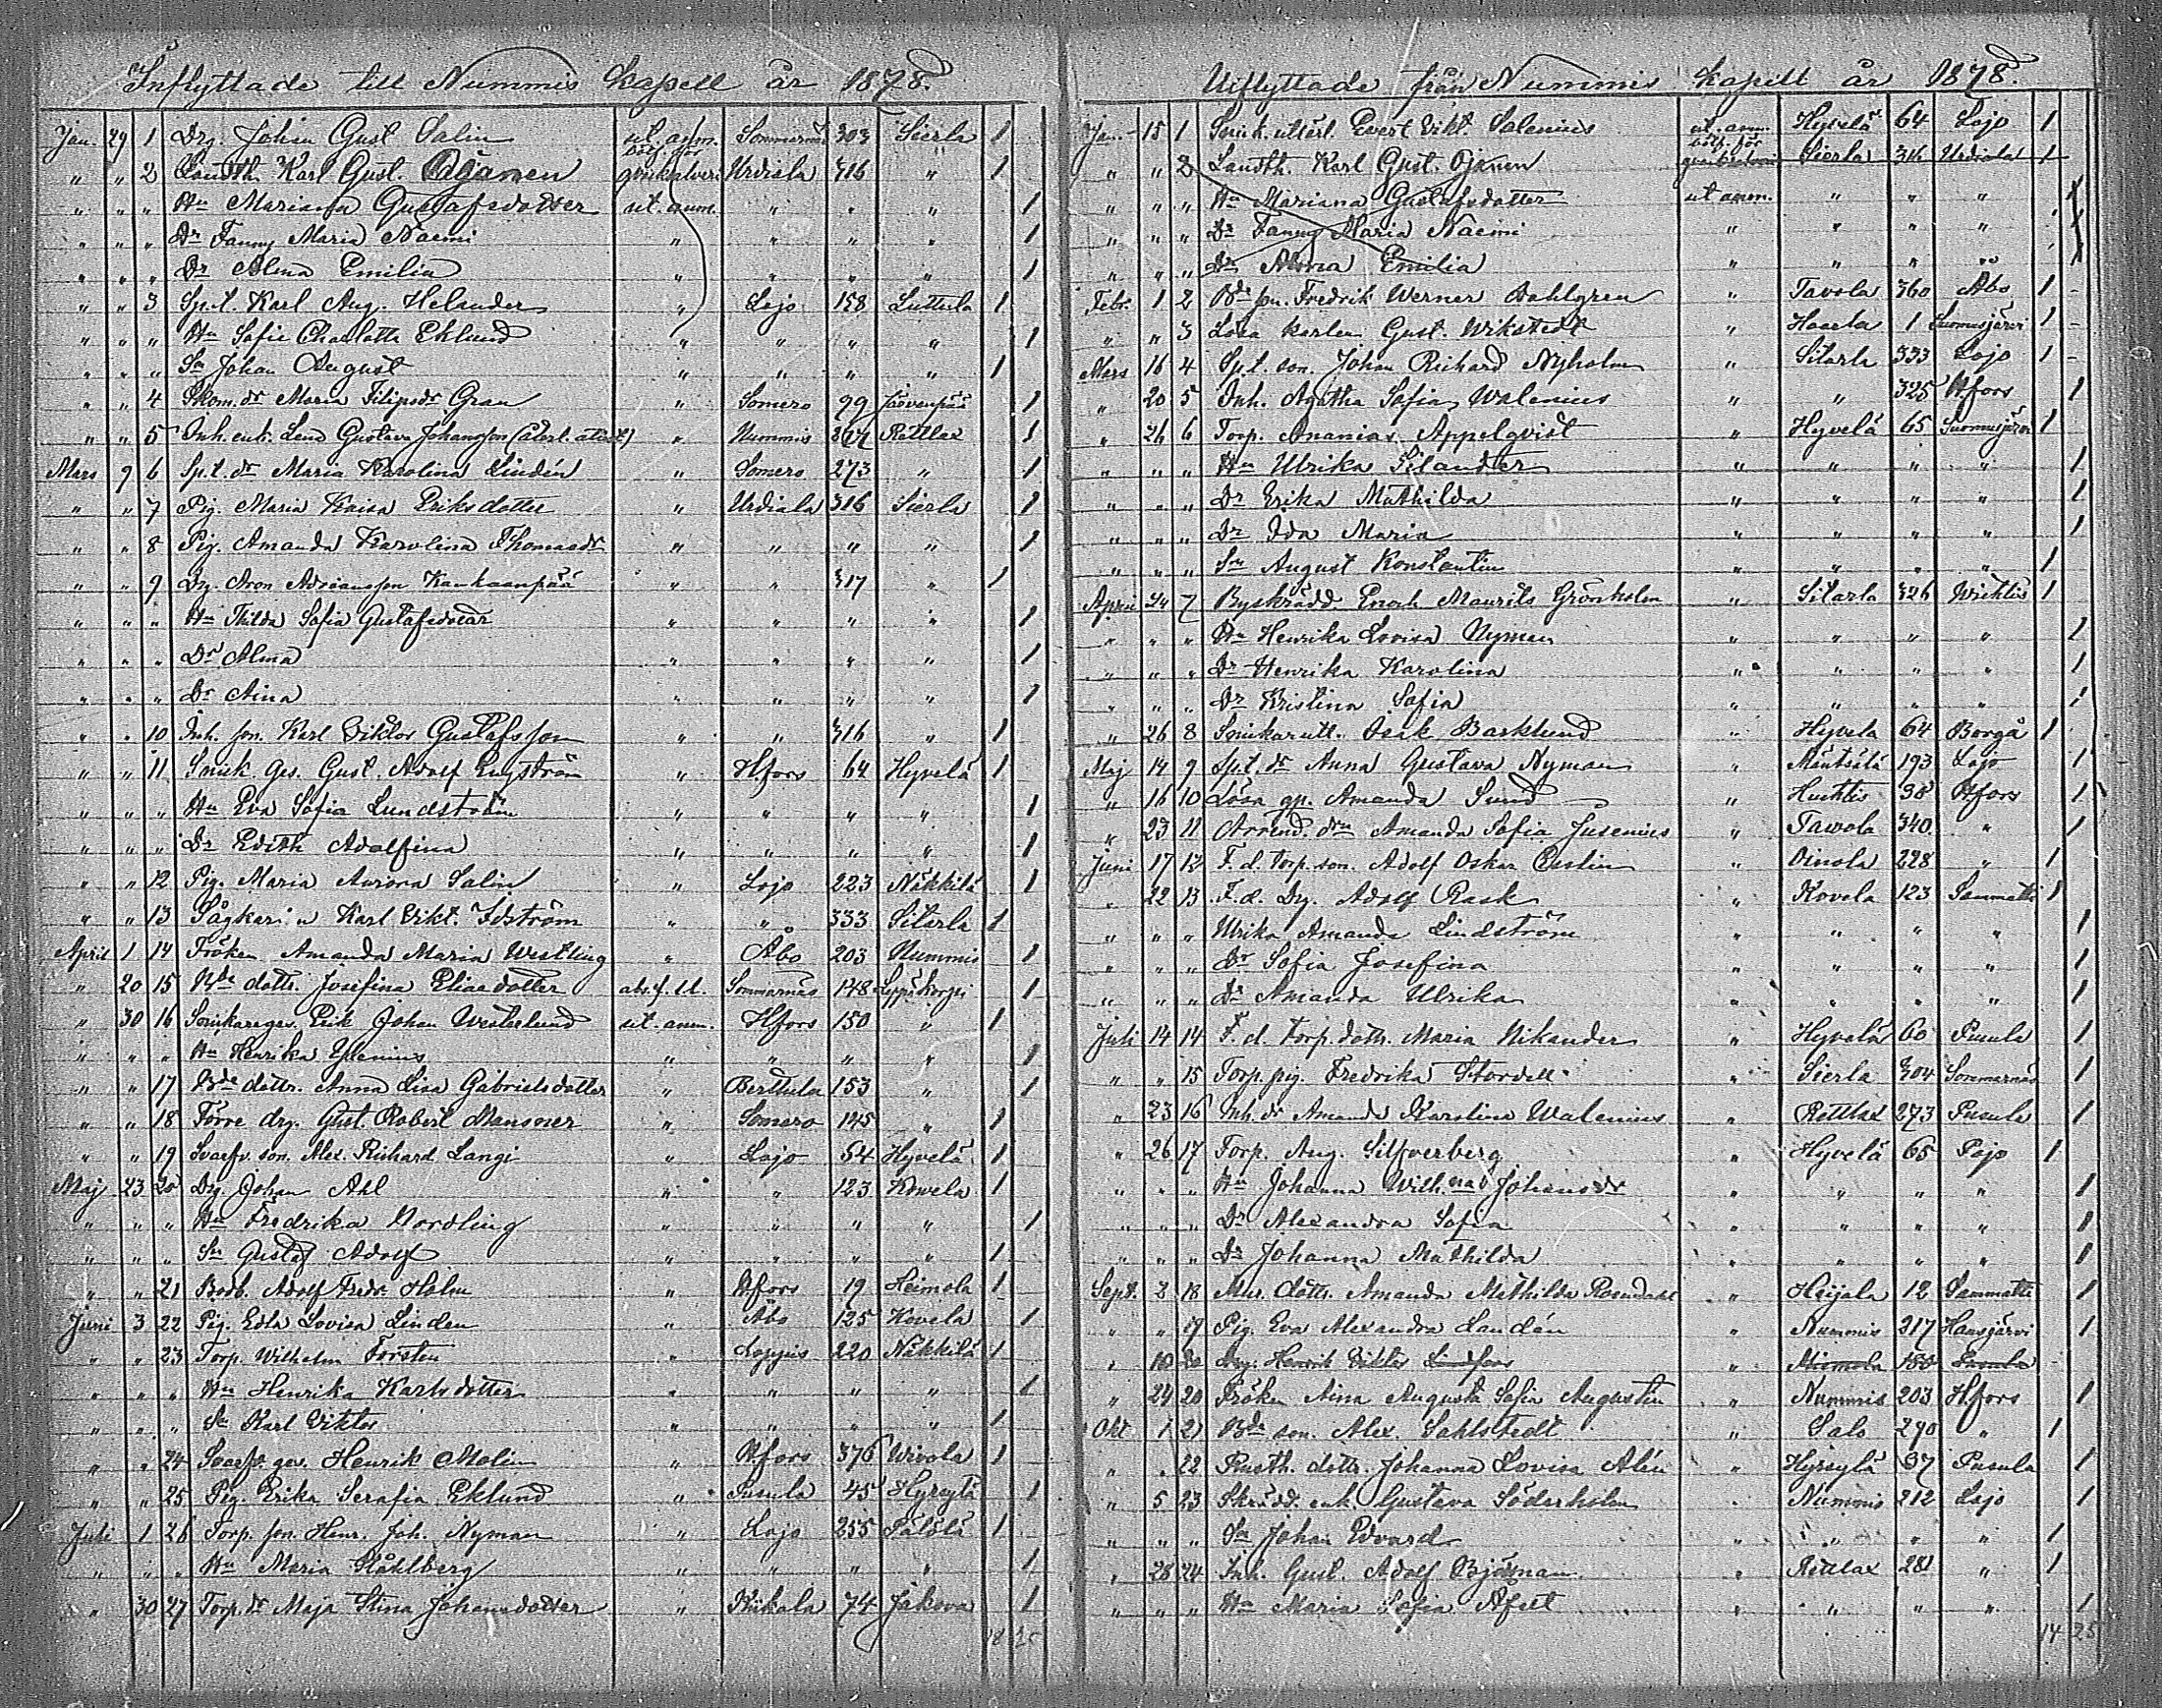 Inflyttade till Nummis kapell år 1878.
Jan. 29 1 Drg. Johan Gust Salin ut. anm. Sommarnäs 303 Sierla 1
" " 2 Landth. Karl Gust. Ojanen böt. för qvinkalveri Urdiala 316 " 1
" " " Hu Mariana Gustafsdotter ut. anm. " " " 1
" " " Dr Fanny Maria Naemi " " " " 1
" " " Dr Alma Emilia " " " " 1
" " 3 Sp.t. Karl Aug. Helander " Lojo 158 Luttula 1
" " " Hu Sofie Charlotta Eklund " " " " 1
" " " Sn Johan August " " " " 1
" " 4 Skom. dr Maria Filipsdr Gran " Somero 99 Järvenpää 1
" " 5 Inh. enk. Lena Gustava Johansson " Nummis Rettlax 1
Mars 9 6 Sp.t. dr Maria Karolina Lindén " Somero 273 " 1
" " 7 Pig. Maria Kaisa Eriksdotter " Urdiala 316 Sierla 1
" " 8 Pig. Amanda Karolina Thomasdr " " " " 1
" " 9 Drg. Aron Adriansson Kankaanpää " " 317 " 1
" " " Hu Thilda Sofia Gustafsdotter " " " " 1
" " " Dr Alma " " " " 1
" " " Dr Aina " " " " 1
" " 10 Inh. son. Karl Viktor Gustafsson " " 316 " 1
" " 11 Snick. ges. Gust. Adolf Engström " Hfors 64 Hyvelä 1
" " " Hu Eva Sofia Lundström " " " " 1
" " " Dr Edith Adolfina " " " " 1
" " 12 Pig. Maria Aurora Salin " Lojo 223 Näkkilä 1
" " 13 Sågkarl n Karl Vikt. Idström " " 333 Sitarla 1
April 1 14 Fröken Amanda Maria Westling " Åbo 203 Nummis 1
" 20 15 Bde dottr. Josefina Eliaedotter abs. f. ld. Sommarnäs 148 Leppäkorpi 1
" 30 16 Snickareges. Erik Johan Westerlund ut. anm. Hfors 150 " 1
" " " Hu Henrika Ylenius " " " " 1
" " 17 Bde dottr. Anna Lisa Gabrielsdotter " Berttula 153 " 1
" " 18 Förre drg. Gust. Robert Mansner " Somero 145 " 1
" " 19 Svarfv. son. Alex. Richard Langi " Lojo 64 Hyvelä 1
Maj 23 20 Drg. Johan Ahl " " 123 Kowela 1
" " " Hu Fredrika Nordling " " " " 1
" " " Sn Gustaf Adolf " " " " 1
" " 21 Bokb. Adolf Fredr. Holm " Hfors 19 Heimola 1
Juni 3 22 Pig. Edla Lovisa Linden " Åbo 125 Kovela 1
" " 23 Torp. Wilhelm Forstén " Loppis 220 Näkkilä 1
" " " Hu Henrika Karlsdotter " " " " 1
" " " Sn Karl Viktor " " " " 1
" " 24 Svarfv. ges. Henrik Molin " Hfors 376 Wivola 1
" " 25 Pig. Erika Serafia Eklund " Pusula 45 Hyrsylä 1
Juli 1 26 Torp. son. Henr. Joh. Nyman " Lojo 255 Pälölä 1
" " " Hu Maria Ståhlberg " " " " 1
" 30 27 Torp. dr Maja Stina Johansdotter " Kiikala 74 Jakova 1
18 25
Utflyttade från Nummis kapell år 1878.
Jan. 15 1 Snick. utlärl. Evert Vikt. Salenius ut. anm. Hyvelä 64 Lojo 1
" " 2 Landth. Karl Gust. Ojanen böt. för Sierla 316 Urdiala 1
" " " Hu Mariana Gustafsdotter ut anm. " " " 1
" " " Dr Fanny Maria Naemi " " " " 1
" " " Dr Alma Emilia " " " " 1
Febr. 1 2 Bde son. Fredrik Werner Dahlgren " Tavola 360 Åbo 1
" " 3 Lösa karlen Gust. Wikstedt " Haarla 1 Suomusjärvi 1
Mars 16 4 Sp.t. son. Johan Richard Nyholm " Sitarla 333 Lojo 1
" 20 5 Inh. Agatha Sofia Walenius " " 325 Hfors 1
" 26 6 Torp. Ananias Appelqvist " Hyvelä 65 Suomusjärvi 1
" " " Hu Ulrika Silander " " " " 1
" " " Dr Erika Mathilda " " " " 1
" " " Dr Ida Maria " " " " 1
" " " Sn August Konstantin " " " " 1
April 24 7 Byskrädd. Enoch Maurits Grönholm " Sitarla 326 Wichtis 1
" " " Hu Henrika Lovisa Nyman " " " " 1
" " " Dr Henrika Karolina " " " " 1
" " " Dr Kristina Sofia " " " " 1
" 26 8 Snikarutl. Isak Barklund " Hyvela 64 Borgå 1
Maj 14 9 Sp.t. dr Anna Gustava Nyman " Mäntsälä 193 Lojo 1
" 16 10 Lösa qp. Amanda Sund " Huhtis 38 Hfors 1
" 23 11 Arrend. drn Amanda Sofia Jusenius " Tawola 340 " 1
Juni 17 12 F. d. torp. son. Adolf Oskar " Oinola 228 " 1
" 22 13 F. d. Drg. Adolf Rask " Kovela 123 Sammatti 1
" " " Ulrika Amanda Lindström " " " " 1
" " " Dr Sofia Josefina " " " " 1
" " " Dr Amanda Ulrika " " " " 1
Juli 14 14 F. d. torp. dottr. Maria Nikander " Hyvelä 60 Pusula 1
" " 15 Torp. pig. Fredrika Stordell " Sierla 304 Sommarnäs 1
" 23 16 Inh. dr Amanda Karolina Walenius " Rettlax 273 Pusula 1
" 26 17 Torp. Aug. Silfverberg " Hyvelä 65 Pojo 1
" " " Hu Johanna Wilh.na Johansdr " " " " 1
" " " Dr Alexandra Sofia " " " " 1
" " " Dr Johanna Mathilda " " " " 1
Sept. 2 18 Mur. dottr. Amanda Mathilda Rosendahl " Heijala 12 Sammatti 1
" " 19 Pig. Eva Alexandra Landén " Nummis 217 Hausjärvi 1
" 10 20 Drg. Henrik Viktor Lindfors " Miemola 150 Pusula
" 24 20 Fröken Aina Augusta Sofia Augustin " Nummis 203 Hfors 1
Okt 1 21 Bde son. Alex. Sahlstedt " Salo 290 " 1
" " 22 Rusth. dottr. Johanna Lovisa Alén " Hyrsylä 37 Pusula 1
" 5 23 Skrädd. enk. Gustava Söderholm " Nummis 212 Lojo 1
" " " Sn Johan Edvard " " " " 1
" 28 24 Inh. Gust. Adolf Björkman " Rettlax 281 " 1
" " " Hu Maria Sofia " " " " 1
14 25